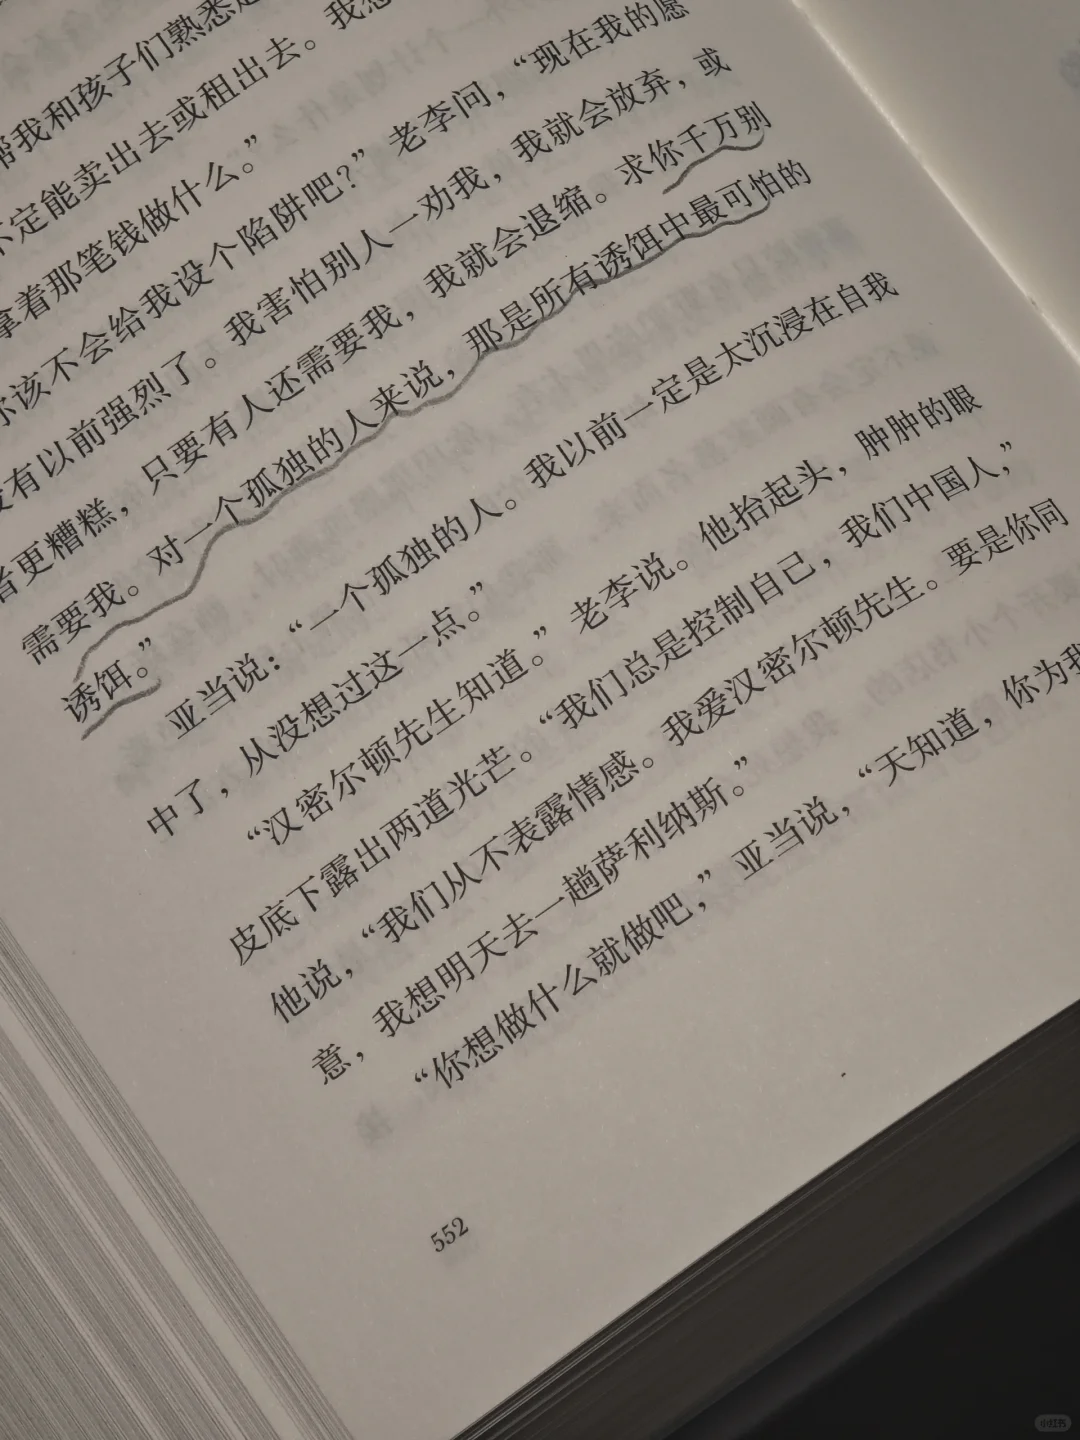 帮我和孩子们熟悉
不定能卖出去或租出去。我想
拿着那笔钱做什么。”
你该不会给我设个陷阱吧？”老李问，“现在我的愿
没有以前强烈了。我害怕别人一劝我，我就会放弃，或
者更糟糕，只要有人还需要我，我就会退缩。求你千万别
需要我。对一个孤独的人来说，那是所有诱饵中最可怕的
诱饵。”
亚当说：“一个孤独的人。我以前一定是太沉浸在自我
中了，从没想过这一点。”
“汉密尔顿先生知道。”老李说。他抬起头，肿肿的眼
皮底下露出两道光芒。“我们总是控制自己，我们中国人，”
他说，“我们从不表露情感。我爱汉密尔顿先生。要是你同
意，我想明天去一趟萨利纳斯。”
“你想做什么就做吧，”亚当说，“天知道，你为我
552
小红书